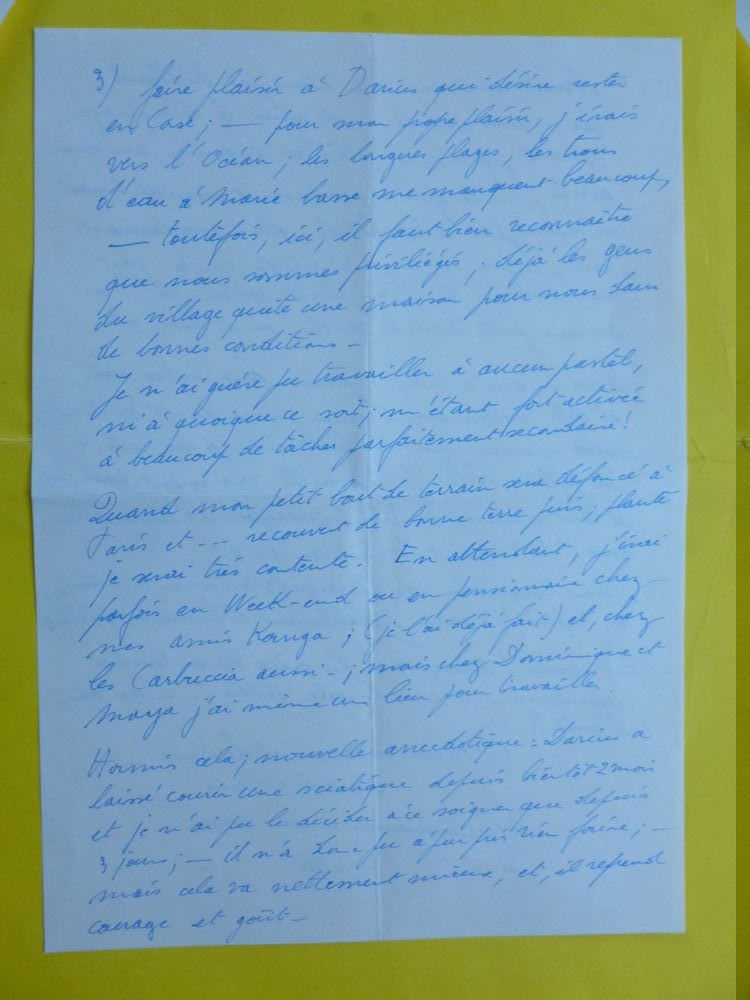 3) faire plaisir à Darius qui désire rester
en Case ; — pour mon propre plaisir, j'irais
vers l'Océan ; les longues plages, les trous
d'eau à Marée basse me manquent beaucoup,
— toutefois, ici, il faut bien reconnaître
que nous sommes priviliégés ; déjà les gens
du village quête une maison pour nous dans
de bonnes conditions —
Je n'ai guère pu travailler à aucun pastel,
ni à quoique ce soit ; m'étant fort activée
à beaucoup de tâches parfaitement secondaire !
Quand mon petit bout de terrain sera défoncé à
Paris et --- recouvert de bonne terre puis ; planté
je serai très contente. En attendant, j'irai
parfois en Week-end ou en pensionnaire chez
mes amis Kanga ; (je l'ai déjà fait) et, chez
les Carbuccia aussi - ; mais chez Dominique et
Maya j'ai même un lieu pour travailler.
Hormis cela ; nouvelle anecdotique : Darius a
laissé courir une sciatique depuis bientôt 2 mois
et je n'ai pu le décider à se soigner que depuis
3 jours ; — il n'a donc pu à peu près rien faire ; —
mais cela va nettement mieux, et, il reprend
courage et goût —